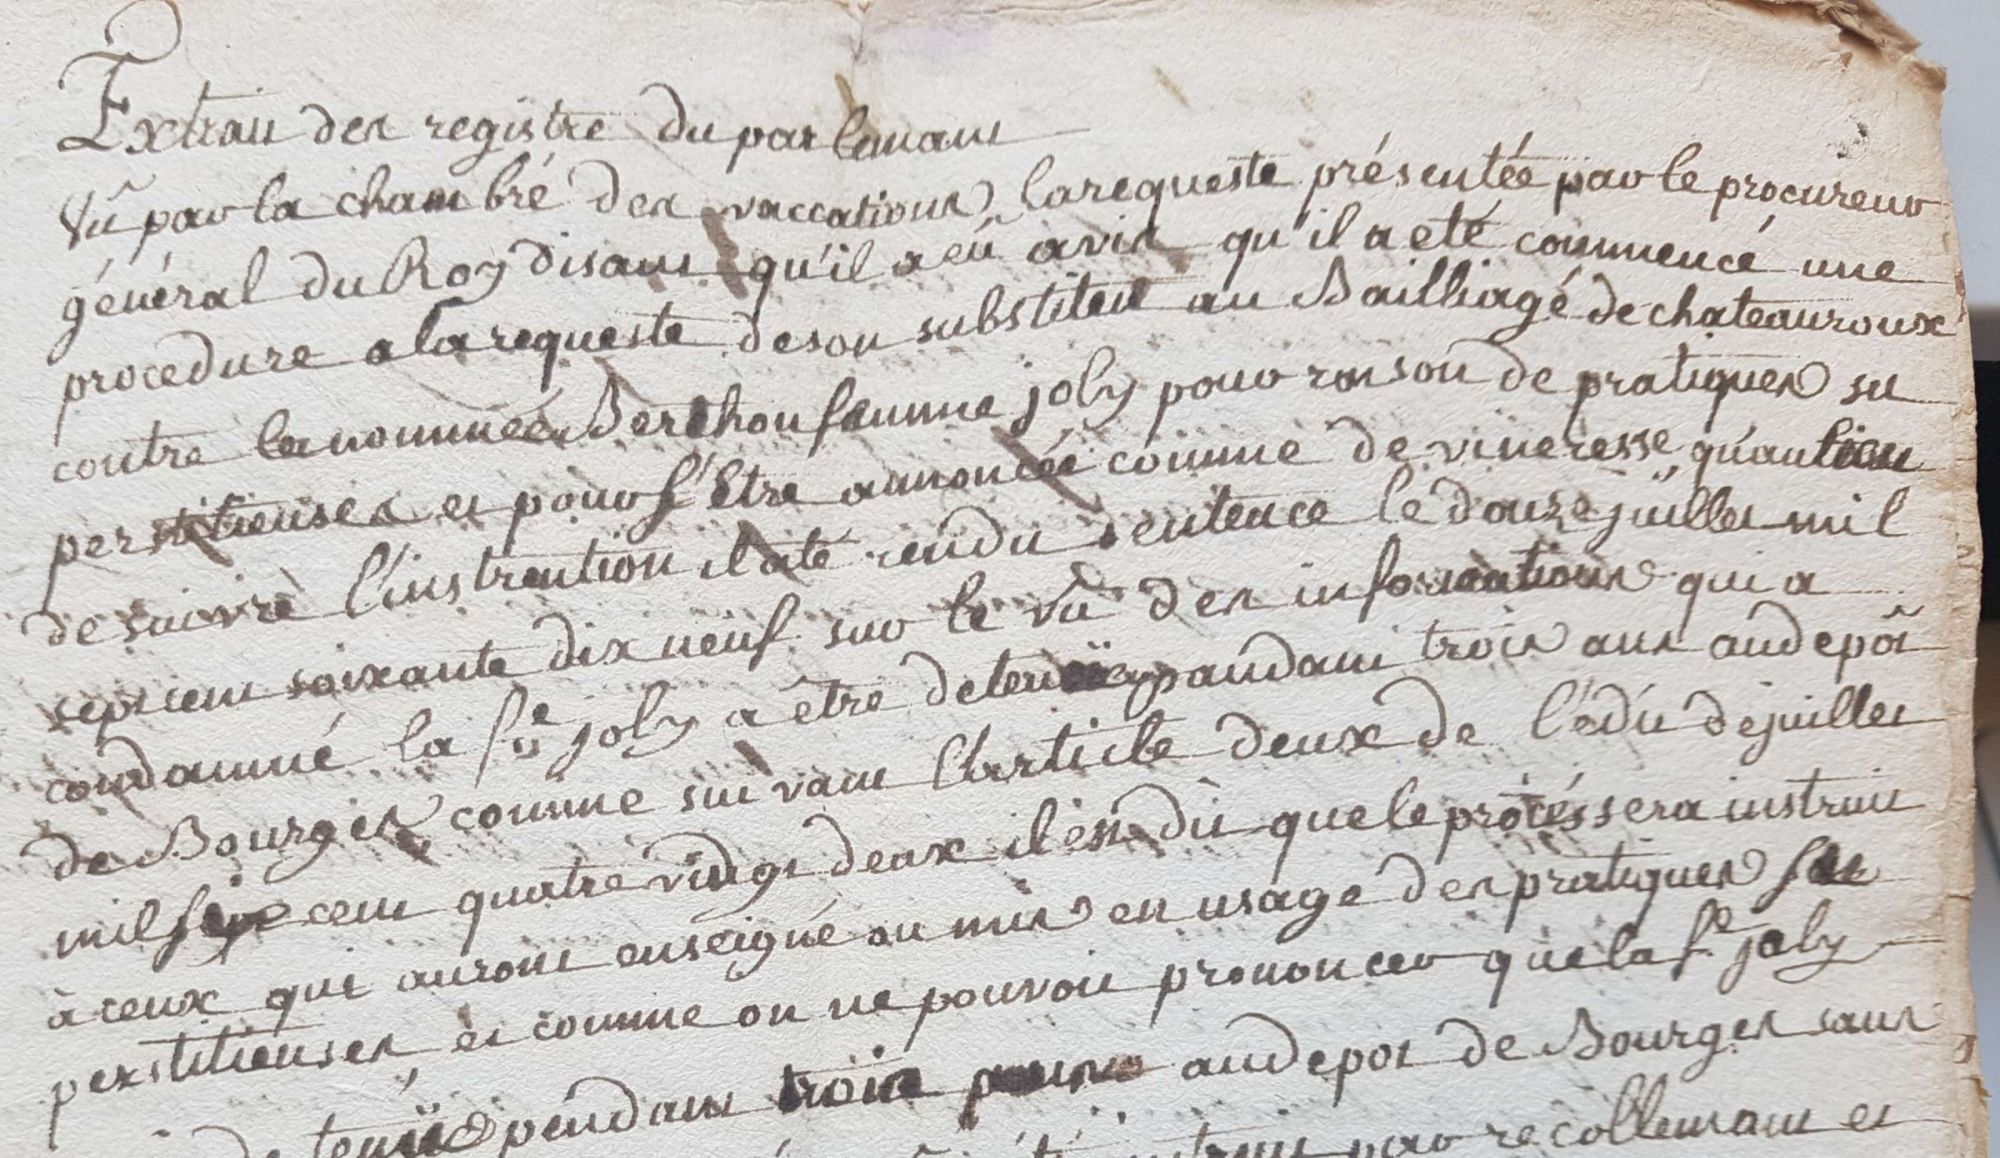 Extrait des registre du parlemant
Vû par la chambré des vaccations la requeste présentée par le procureur
général du Roy disant qu'il a eû avis qu'il a eté commencé une
procedure a la requeste de son substitut au Bailliagé de chateauroux
contre la nommée Berthon femme joly pour raison de pratiques su
perstitieuses et pour s'être annoncée comme de vineresse, qu'au lieu
de suivre l'instruction il a été rendu sentence le douze juillet mil
sept cent soixante dix neuf sur le vû des informations qui a
condamné la fe joly a être detenüe pandant trois ans au depôt
de Bourges comme suivant l'article deux de l'édit de juillet
mil six cent quatre vingt deux il est dit que le procés sera instruit
à ceux qui auront enseigné ou mis en usage des pratiques su
perstitieuses et comme on ne pouvoit prononcer que la fe joly
detenüe pendant trois au depot de Bourges sans
par recollemant et